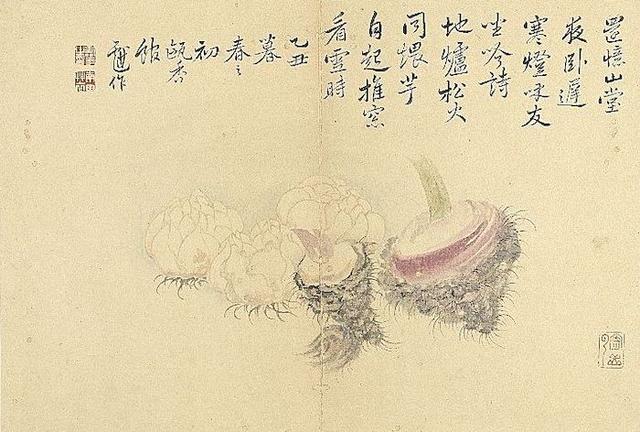 還憶山堂
夜臥遲
寒燈呼友
坐吟詩
地爐松火
同煨芋
自起推窓
看雪時
乙丑
暮
春之
初
甌香
館
作